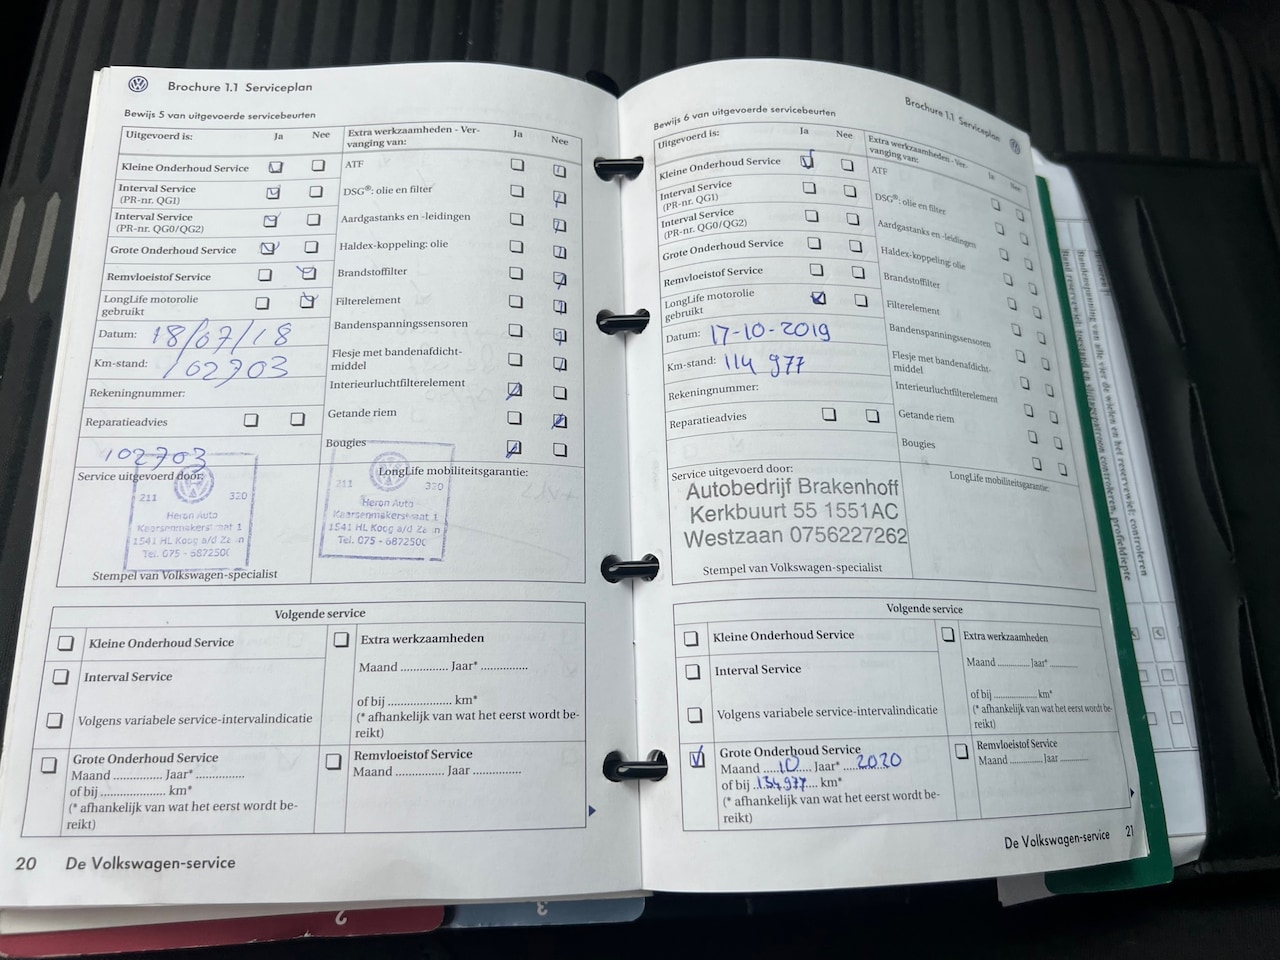 Brochure 1.1 Serviceplan
Bewijs 5 van uitgevoerde servicebeurten
Uitgevoerd is:
Ja
Nee
Extra werkzaamheden - Ver-
vanging van:
Ja
Nee
Kleine Onderhoud Service
Interval Service
(PR-nr. QG1)
Interval Service
(PR-nr. QG0/QG2)
Grote Onderhoud Service
Remvloeistof Service
LongLife motorolie
gebruikt
Datum: 18/07/18
Km-stand: 102703
Rekeningnummer:
Reparatieadvies
ATF
DSG®: olie en filter
Aardgastanks en -leidingen
Haldex-koppeling: olie
Brandstoffilter
Filterelement
Bandenspanningssensoren
Flesje met bandenafdicht-
middel
Interieurluchtfilterelement
Getande riem
Bougies
102703
Service uitgevoerd door:
211 320
Heron Auto
Kaarsenmakerstraat 1
1541 HL Koog a/d Zaan
Tel. 075 - 6872500
Stempel van Volkswagen-specialist
LongLife mobiliteitsgarantie:
211 320
Heron Auto
Kaarsenmakerstraat 1
1541 HL Koog a/d Zaan
Tel. 075 - 6872500
Volgende service
Kleine Onderhoud Service
Interval Service
Volgens variabele service-intervalindicatie
Extra werkzaamheden
Maand ............... Jaar* ...............
of bij ..................... km*
(* afhankelijk van wat het eerst wordt be-
reikt)
Grote Onderhoud Service
Maand ............... Jaar* ...............
of bij ..................... km*
(* afhankelijk van wat het eerst wordt be-
reikt)
Remvloeistof Service
Maand ............... Jaar ...............
20 De Volkswagen-service
Brochure 1.1 Serviceplan
Bewijs 6 van uitgevoerde servicebeurten
Uitgevoerd is:
Ja
Nee
Extra werkzaamheden - Ver-
vanging van:
Ja
Nee
Kleine Onderhoud Service
Interval Service
(PR-nr. QG1)
Interval Service
(PR-nr. QG0/QG2)
Grote Onderhoud Service
Remvloeistof Service
LongLife motorolie
gebruikt
Datum: 17-10-2019
Km-stand: 114 977
Rekeningnummer:
Reparatieadvies
ATF
DSG®: olie en filter
Aardgastanks en -leidingen
Haldex-koppeling: olie
Brandstoffilter
Filterelement
Bandenspanningssensoren
Flesje met bandenafdicht-
middel
Interieurluchtfilterelement
Getande riem
Bougies
Service uitgevoerd door:
Autobedrijf Brakenhoff
Kerkbuurt 55 1551AC
Westzaan 0756227262
Stempel van Volkswagen-specialist
LongLife mobiliteitsgarantie:
Volgende service
Kleine Onderhoud Service
Interval Service
Volgens variabele service-intervalindicatie
Extra werkzaamheden
Maand ............ Jaar* ............
of bij ..................... km*
(* afhankelijk van wat het eerst wordt be-
reikt)
Grote Onderhoud Service
Maand 10 Jaar* 2020
of bij 134977 km*
(* afhankelijk van wat het eerst wordt be-
reikt)
Remvloeistof Service
Maand ............ Jaar ............
De Volkswagen-service 21
2
3